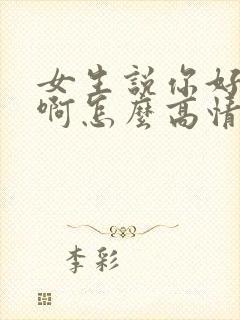 女生説你好
啊怎麼高情
李彩